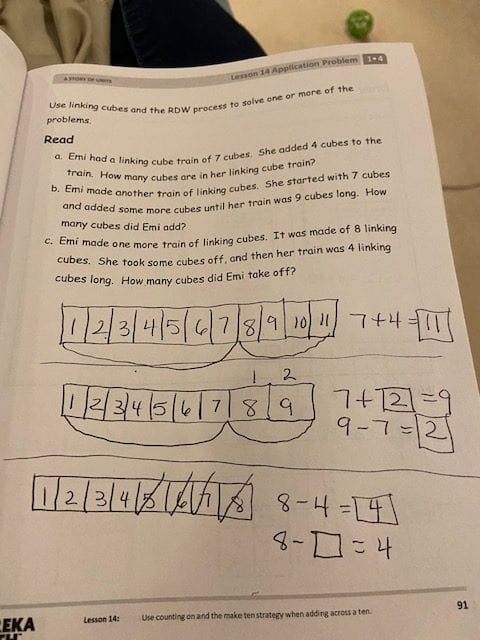 A STORY OF UNITS
Lesson 14 Application Problem 1•4
Use linking cubes and the RDW process to solve one or more of the
problems.
Read
a. Emi had a linking cube train of 7 cubes. She added 4 cubes to the
train. How many cubes are in her linking cube train?
b. Emi made another train of linking cubes. She started with 7 cubes
and added some more cubes until her train was 9 cubes long. How
many cubes did Emi add?
c. Emi made one more train of linking cubes. It was made of 8 linking
cubes. She took some cubes off, and then her train was 4 linking
cubes long. How many cubes did Emi take off?
1 2 3 4 5 6 7 8 9 10 11 7+4=11
1 2
1 2 3 4 5 6 7 8 9 7+2=9
9-7=2
1 2 3 4 5 6 7 8 8-4=4
8-□=4
EKA
TH
Lesson 14: Use counting on and the make ten strategy when adding across a ten.
91